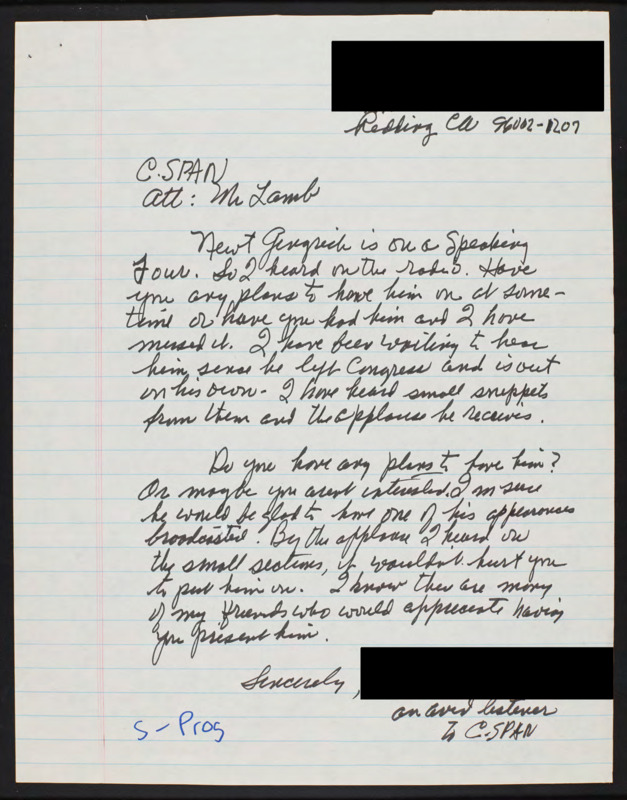 Redding CA 96002-1207
C.SPAN
Att: Mr Lamb
Newt Gingrich is on a Speaking
Tour. So I heard on the radio. Have
you any plans to have him on at some-
time or have you had him and I have
missed it. I have been waiting to hear
him, sense he left Congress and is out
on his own - I have heard small snippets
from them and the applause he receives.
Do you have any plans to have him?
Or maybe you arent interested. I'm sure
he would be glad to have one of his appearances
broadcasted. By the applause I heard on
the small sections, it wouldn't hurt you
to put him on. I know ther are many
of my friends who would appreciate having
you present him.
Sincerely,
an avid listener
to C-SPAN
S-Prog